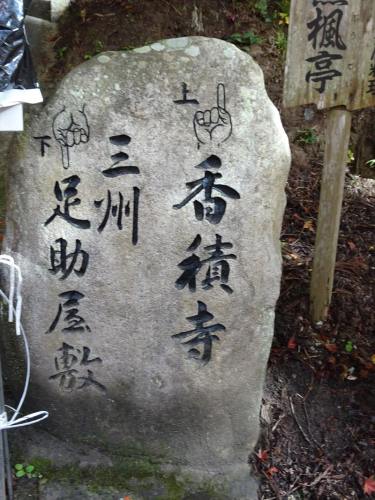 上
香積寺
下
三州
足助屋敷
楓亭